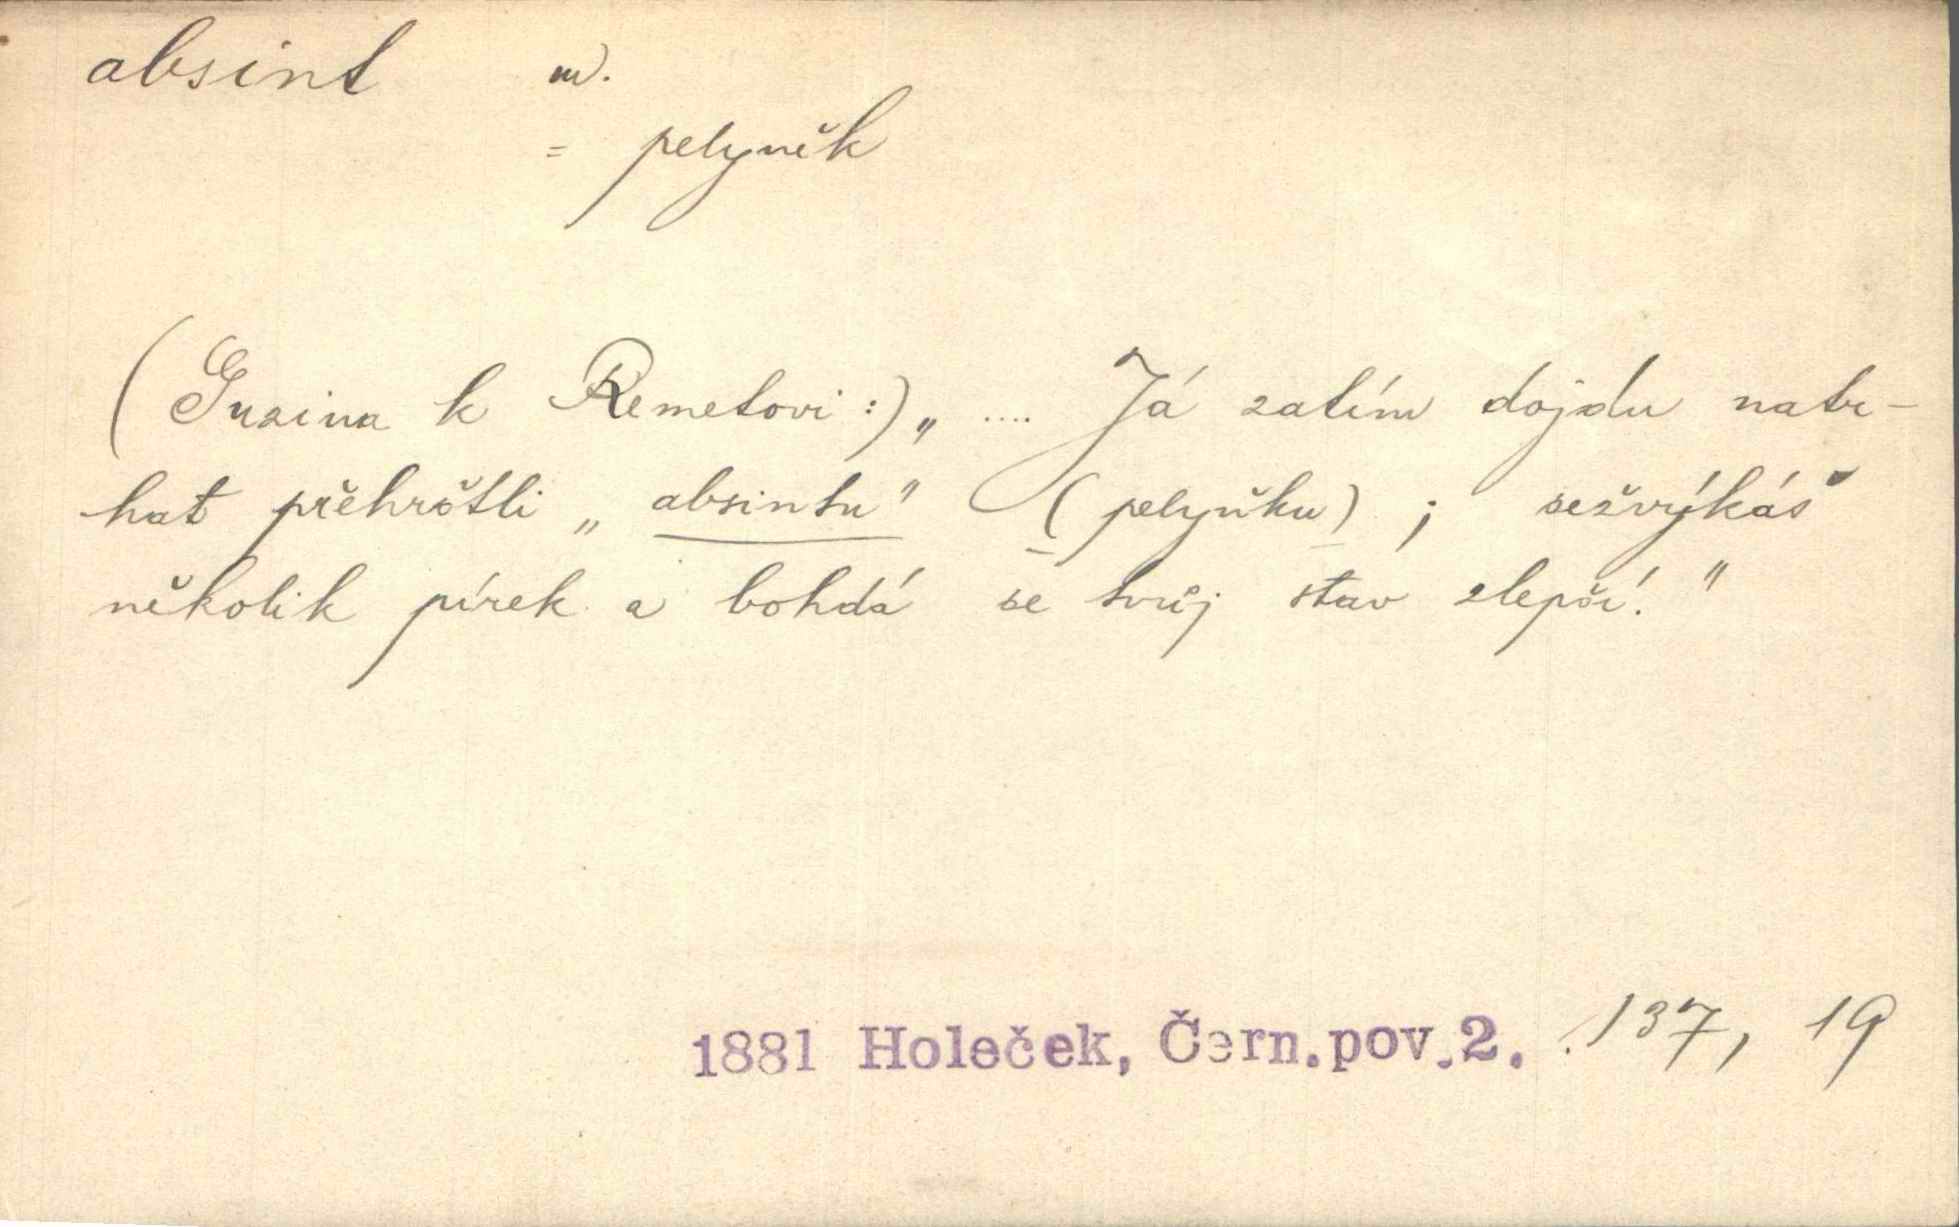 absint m.
= pelyněk
(Guzina k Remetovi:) „ .... Já zatím dojdu natr-
hat přehrštli „absintu" (pelyňku) ; sežvýkáš
několik pírek a bohdá se tvůj stav zlepší."
1881 Holeček, Čern.pov.2. 137, 19